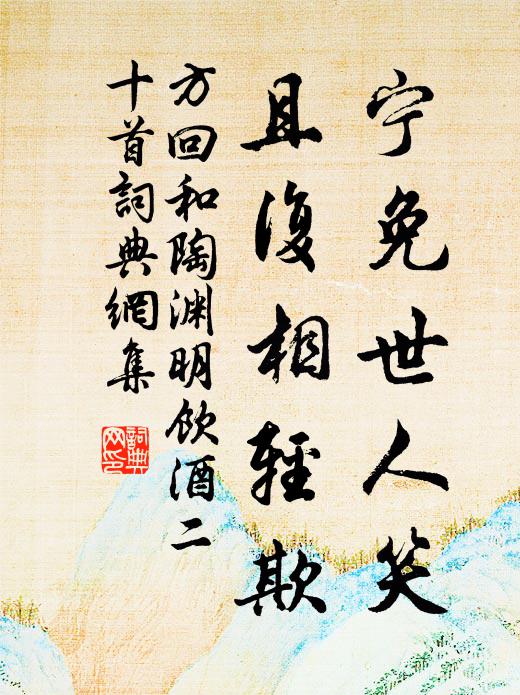 宁免世人笑
且復相輕欺
方回和陶渊明饮酒二
十首詞典網集
詞典網印